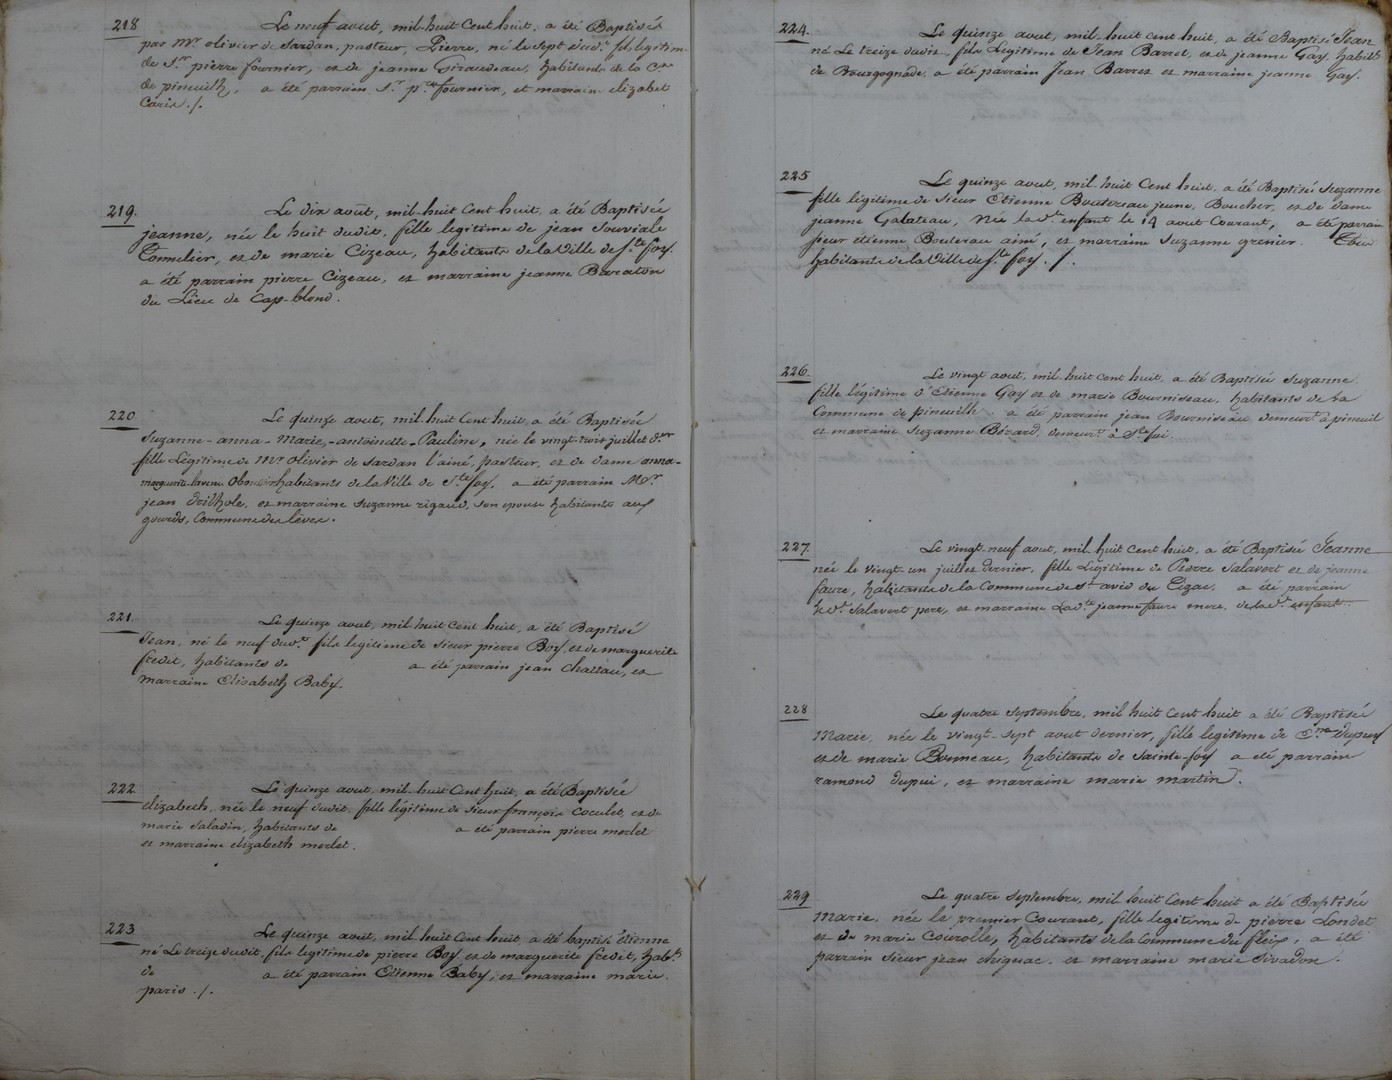 218
Le neuf aout, mil-huit Cent huit, a été Baptisé
par Mr. olivier de Sardan, pasteur, Pierre, né le Sept dud.t fils legitime
de S.r pierre fournier, et de jeanne Giraudeau, habitants de la C.ne
de pineuilh, a été parrain S.r p.re fournier, et marraine elizabet
Caris ./.
219.
Le dix août, mil-huit Cent huit, a été Baptisée
jeanne, née le huit dudit, fille legitime de jean Souviale
Tonnelier, et de marie Cizeau, habitants de la Ville de S.te foy.
a été parrain pierre Cizeau, et marraine jeanne Baraton
du Lieu de Cap-blond.
220
Le quinze aout, mil-huit Cent huit, a été Baptisée
Suzanne-anna-Marie-antoinette-Pauline, née le vingt-trois juillet d.er
fille Légitime de Mr olivier de Sardan l'ainé, pasteur, et de dame anna-
marguerite habitants de la Ville de S.te foy, a été parrain M.r
jean Drilhole, et marraine Suzanne rigaud, son epouse habitants aux
gourds, Commune des lèves.
221.
Le quinze aout, mil huit Cent huit, a été Baptisé
Jean, né le neuf dud.t fils legitime de Sieur pierre Boy, et de marguerite
fredit, habitants de a été parrain jean Chastau, et
marraine Elisabeth Baby.
222
Le quinze aout, mil-huit Cent huit, a été Baptisée
elizabeth, née le neuf dudit, fille légitime de Sieur françois Coculet, et de
marie Saladin, habitants de a été parrain pierre merlet
et marraine elizabeth merlet.
223
Le quinze aout, mil-huit Cent huit, a été baptisé étienne
né Le treize dudit, fils legitime de pierre Boy et de marguerite fredit, hab.ts
de a été parrain Etienne Baby, et marraine marie
paris ./.
224.
Le quinze aout, mil-huit Cent huit, a été Baptisé Jean
né Le treize dudit, fils Légitime de Jean Barret, et de jeanne Gay, habit.ts
de Bourgognade, a été parrain Jean Barret et marraine jeanne Gay.
225
Le quinze aout, mil-huit Cent huit, a été Baptisée Suzanne
fille légitime de Sieur Etienne Boutereau jeune, Boucher, et de dame
jeanne Galateau, Née lad.te enfant le 14 aout Courant, a été parrain
Sieur étienne Boutereau ainé, et marraine Suzanne grenier.
habitants de la Ville de S.te foy. /.
226.
Le vingt aout, mil-huit Cent huit, a été Baptisée Suzanne
fille légitime d'Etienne Gay et de marie Bourniseau, habitants de la
Commune de pineuilh. a été parrain jean Bourniseau demeur.t à pineuil
et marraine Suzanne Bérard, demeur.t à S.te foi.
227.
Le vingt-neuf aout, mil-huit Cent huit, a été Baptisée Jeanne
née le vingt-un juillet dernier, fille Légitime de Pierre Salavert et de jeanne
faure, habitants de la Commune de St. avid du Tizac, a été parrain
led.t Salavert pere, et marraine Lad.te jeanne faure mere, de lad.te enfant.
228
Le quatre Septembre, mil huit Cent huit a été Baptisée
Marie, née le vingt-Sept aout dernier, fille legitime de dupuy
et de marie Bonneau, habitants de Sainte-foy a été parrain
ramond dupui, et marraine marie martin.
229
Le quatre Septembre, mil-huit Cent huit a été Baptisée
Marie, née le premier Courant, fille legitime de pierre Londet
et de marie Courolle, habitants de la Commune du fleix, a été
parrain Sieur jean chignac, et marraine marie Sivadon.